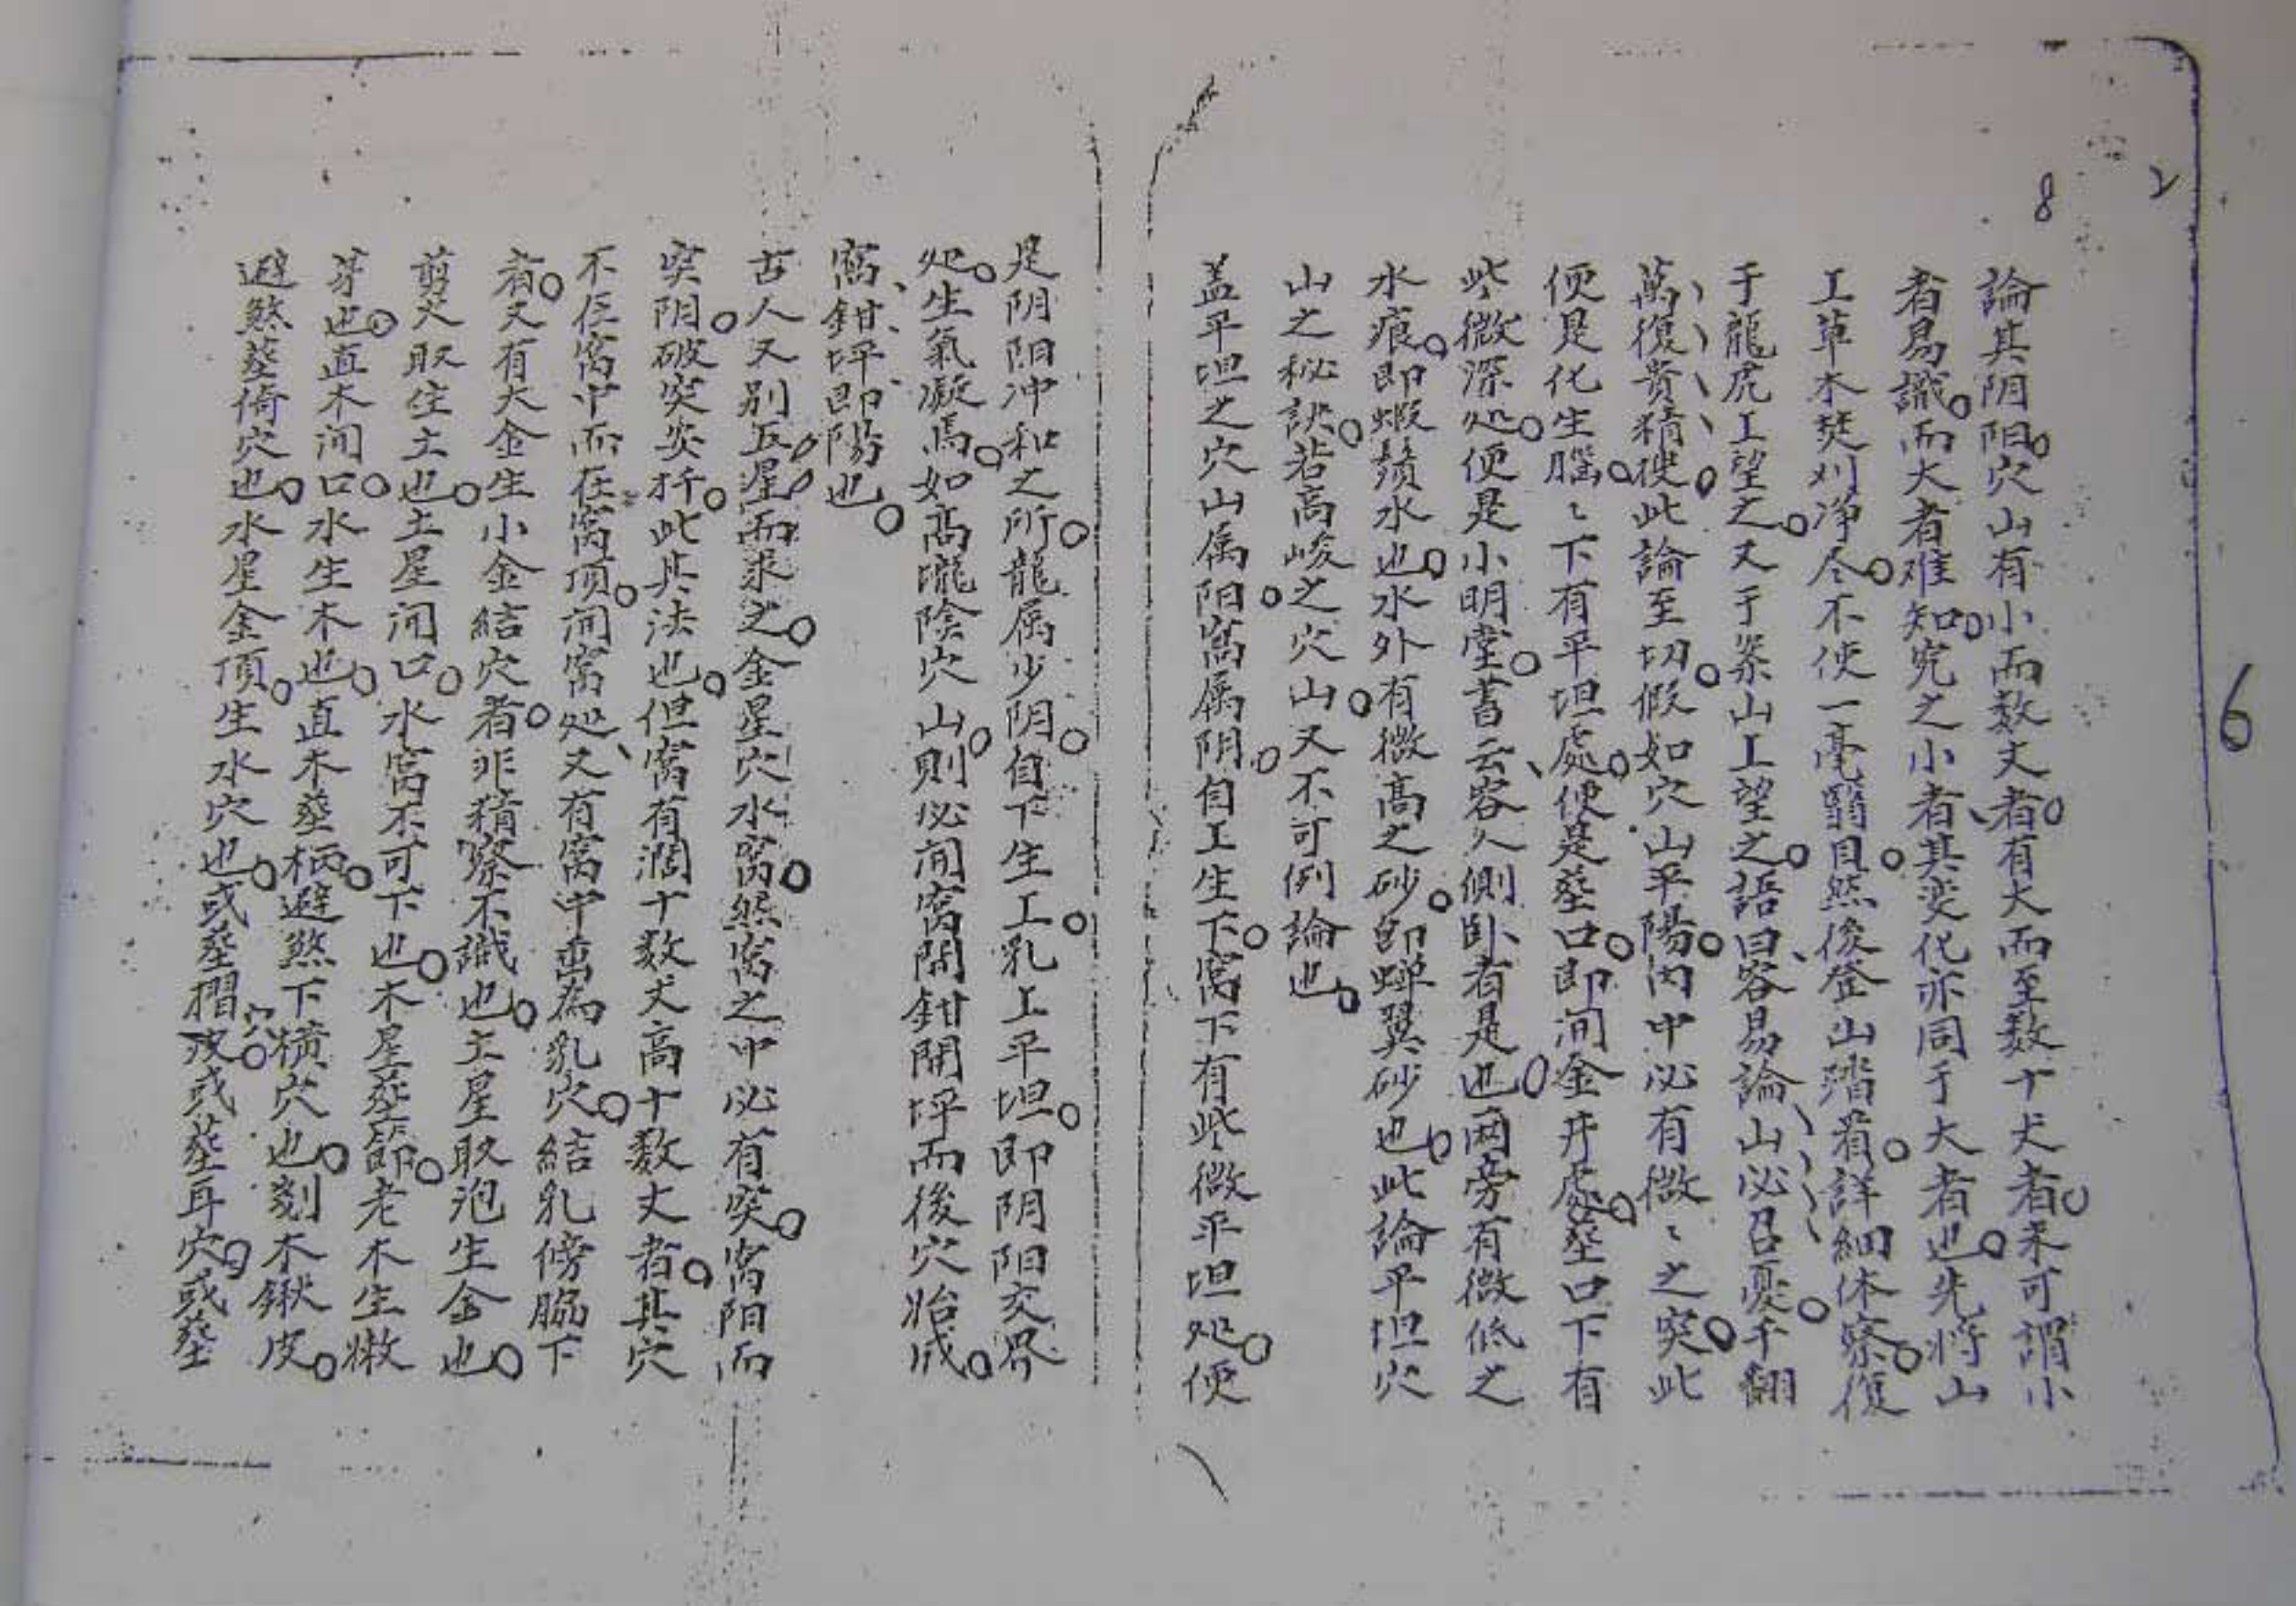 2
8
6
論其阴阳穴山有小而数丈者有大而至数十丈者未可謂小
者易識而大者难知究之小者其变化亦同于大者也先将山
上草木焚刈净尽不使一毫翳目然後登山踏看詳細体察復
于龍虎上望之又于案山上望之語曰容易論山必召憂千翻
萬復貴精硬此論至切假如穴山平陽内中必有微〻之突此
便是化生腦〻下有平坦處便是塟口即间金井處塟口下有
些微深处便是小明堂書云容人側卧者是也两旁有微低之
水痕即蝦鬚水也水外有微高之砂即蟬翼砂也此論平坦穴
山之秘訣若高峻之穴山又不可例論也
盖平坦之穴山属阳窩属阴自上生下窩下有些微平坦处便
是阴阳冲和之所龍属少阴自下生上乳上平坦即阴阳交界
处生氣凝焉如高壠陰穴山則必间窩開鉗開坪而後穴始成
窩鉗坪即陽也
古人又别五星而求之金星穴水窩然窩之中必有突窩阳而
突阴破突安扦此其法也但窩有濶十数丈高十数丈者其穴
不在窩中而在窩顶间窩处又有窩中垂為乳穴結乳傍脇下
者又有大金生小金結穴者非精察不識也土星取泡生金也
剪火取生土也土星间口水窩不可下也木星塟節老木生嫩
芽也直木间口水生木也直木塟柄避煞下横穴也刻木鍬皮
避煞塟倚穴也水星金頂生水穴也或塟摺皮穴或塟耳穴或塟